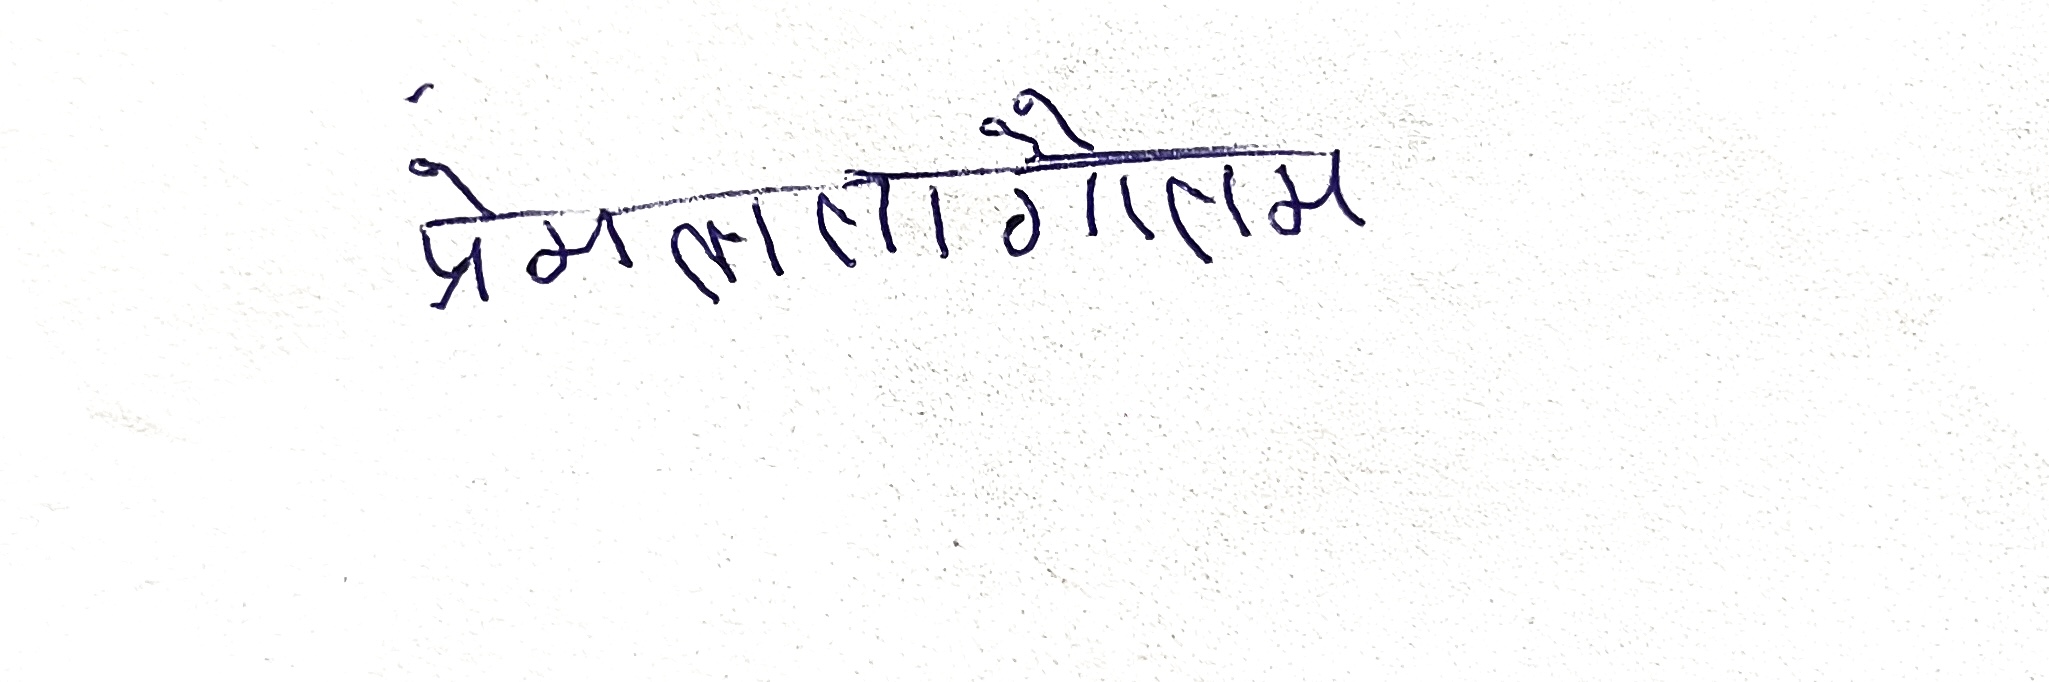 प्रेमलता गौतम